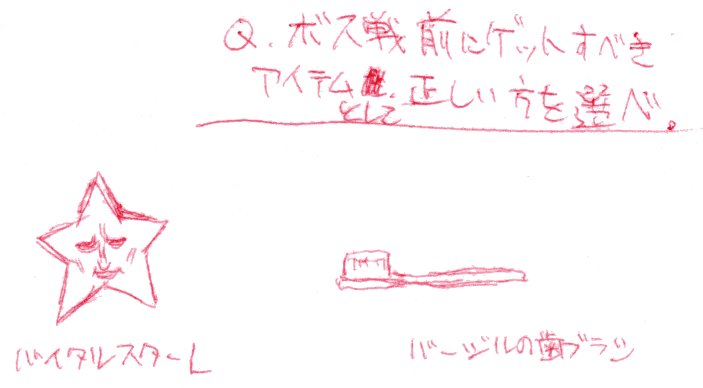 Q. ボス戦前にゲットすべき
アイテムとして、正しい方を選べ。
バイタルスターL
バージルの歯ブラシ